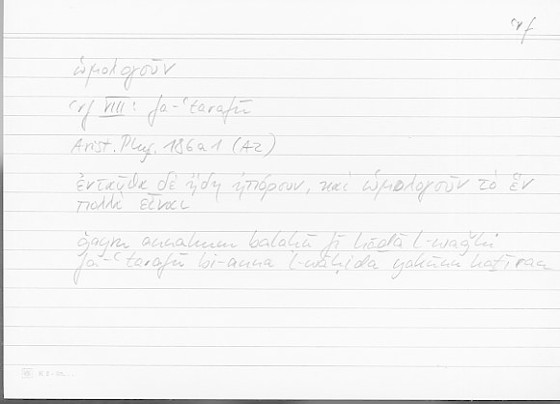 ʿrf
ὡμολογοῦν
ʿrf VIII: fa-ʿtarafū
Arist. Phys. 186a1 (A2)
ἐνταῦθα δὲ ἤδη ἠπόρουν, καὶ ὡμολογοῦν τὸ ἓν
πολλὰ εἶναι
annahum balaġū fī hāḏā l-waǧhi
fa-ʿtarafū bi-anna l-wāḥida yakūnu kaṯīran